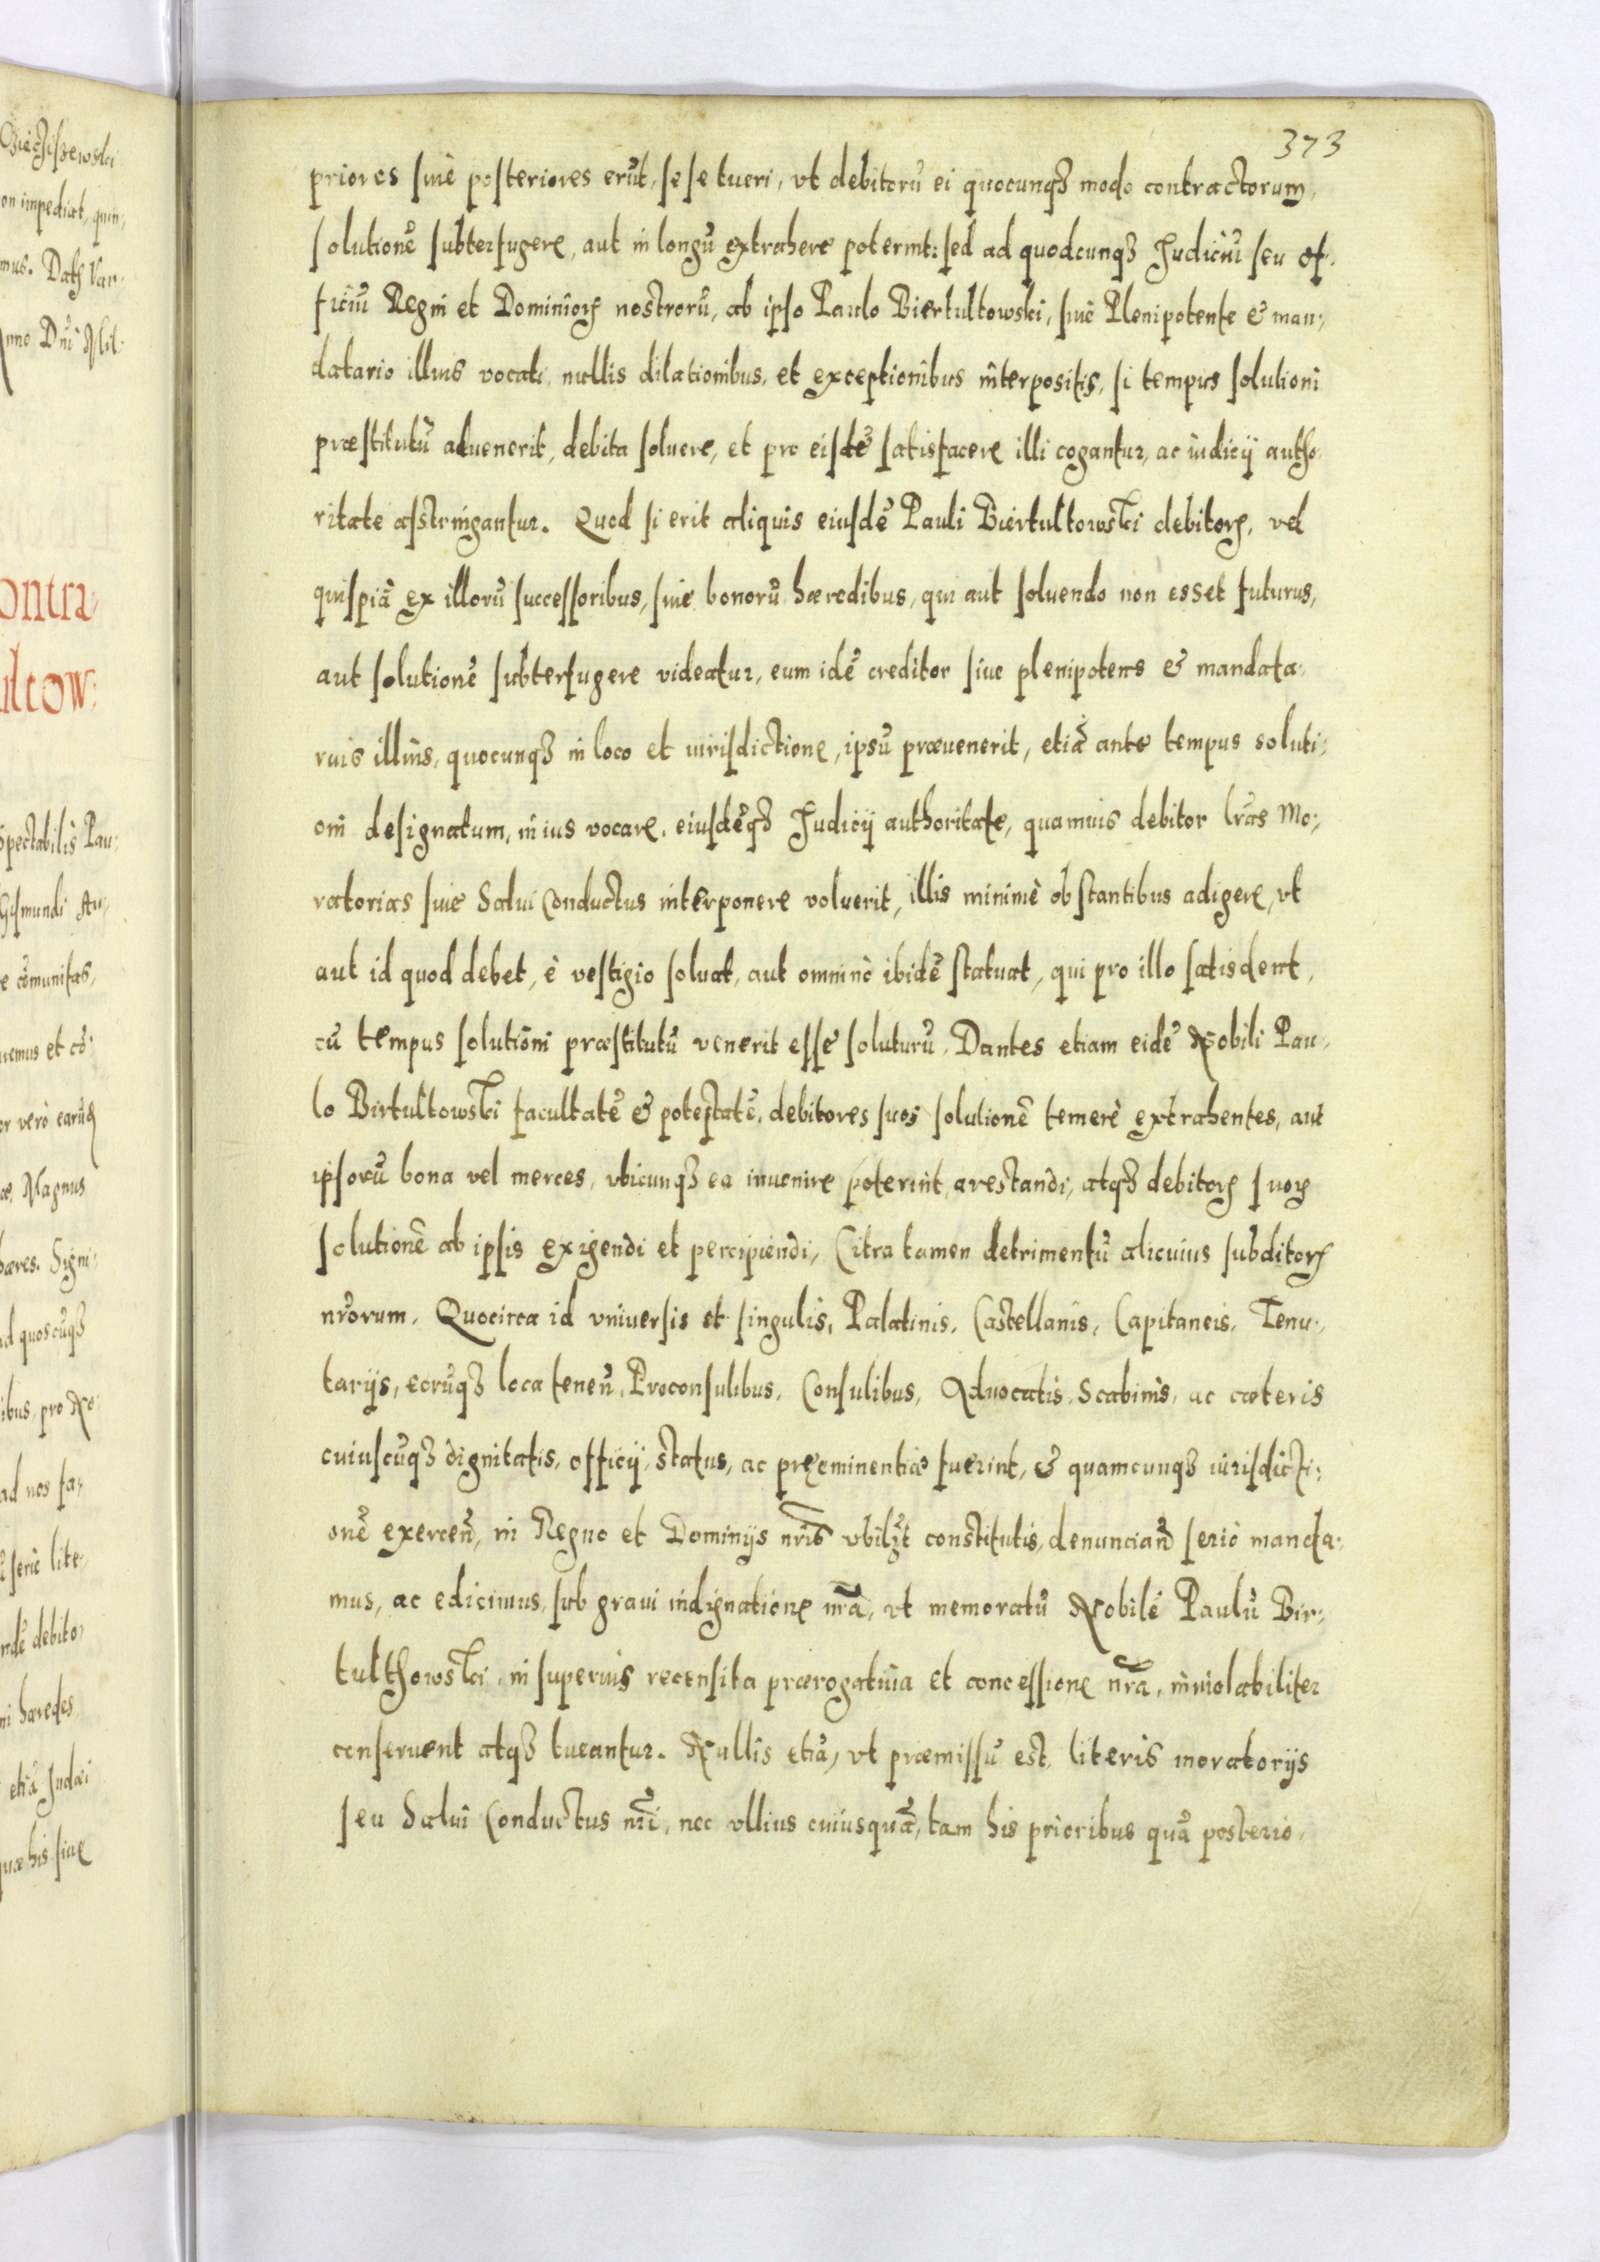 373
priores siue posteriores erūt, se se tueri, vt debitorū ei quocunqȝ modo contractorum,
solutionē subterfugere, aut in longū extrahere poterint: sed ad quodcunqȝ Judiciū seu of„
ficiū Regni et Dominioꝝ nostrorū, ab ipso Paulo Biertultowski, siue Plenipotente & man„
datario illius vocati, nullis dilationibus, et exceptionibus interpositis, si tempus solutioni
præstitutū aduenerit, debita soluere, et pro eisdē satisfacere illi cogantur, ac iudicij autho„
ritate astringantur. Quod si erit aliquis eiusdē Pauli Biertultowski debitoꝝ, vel
quispiā ex illorū successoribus, siue bonorū hæredibus, qui aut soluendo non esset futurus,
aut solutionē subterfugere videatur, eum idē creditor siue plenipotens & mandata„
rius illius, quocunqȝ in loco et iurisdictione, ipsū præuenerit, etiā ante tempus soluti„
oni designatum, in ius vocare, eiusdēqȝ Judicij authoritate, quamuis debitor lr̄as Mo„
ratorias siue Salui Conductus interponere voluerit, illis minimè obstantibus adigere, vt
aut id quod debet, è vestigio soluat, aut omninò ibidē statuat, qui pro illo satisdent,
cū tempus solutioni præstitutū venerit esse soluturū. Dantes etiam eidē Nobili Pau„
lo Birtultowski facultatē & potestatē, debitores suos solutionē temerè extrahentes, aut
ipsorū bona vel merces, vbicunqȝ ea inuenire poterint, arestandi, atqȝ debitoꝝ suoꝝ
solutionē ab ipsis exigendi et percipiendi, Citra tamen detrimentū alicuius subditoꝝ
nr̄orum. Quocirca id vniuersis et singulis, Palatinis, Castellanis, Capitaneis, Tenu„
tarijs, eorūqȝ loca tenen̄, Proconsulibus, Consulibus, Aduocatis, Scabinis, ac cæteris
cuiuscūqȝ dignitatis, officij, status, ac præeminentiæ fuerint, & quamcunqȝ iurisdicti„
onē exercen̄, in Regno et Dominijs nr̄is vbilꝫt constitutis, denunciand̄ seriò manda„
mus, ac edicimus, sub graui indignatione nr̄a, vt memoratū Nobilē Paulū Bir„
tulthowski, in superius recensita prærogatiua et concessione nr̄a, inuiolabiliter
conseruent atqȝ tueantur. Nullis etiā, vt præmissū est, literis moratorijs
seu Salui Conductus nr̄i, nec ullius cuiusquā, tam his prioribus quā posterio„